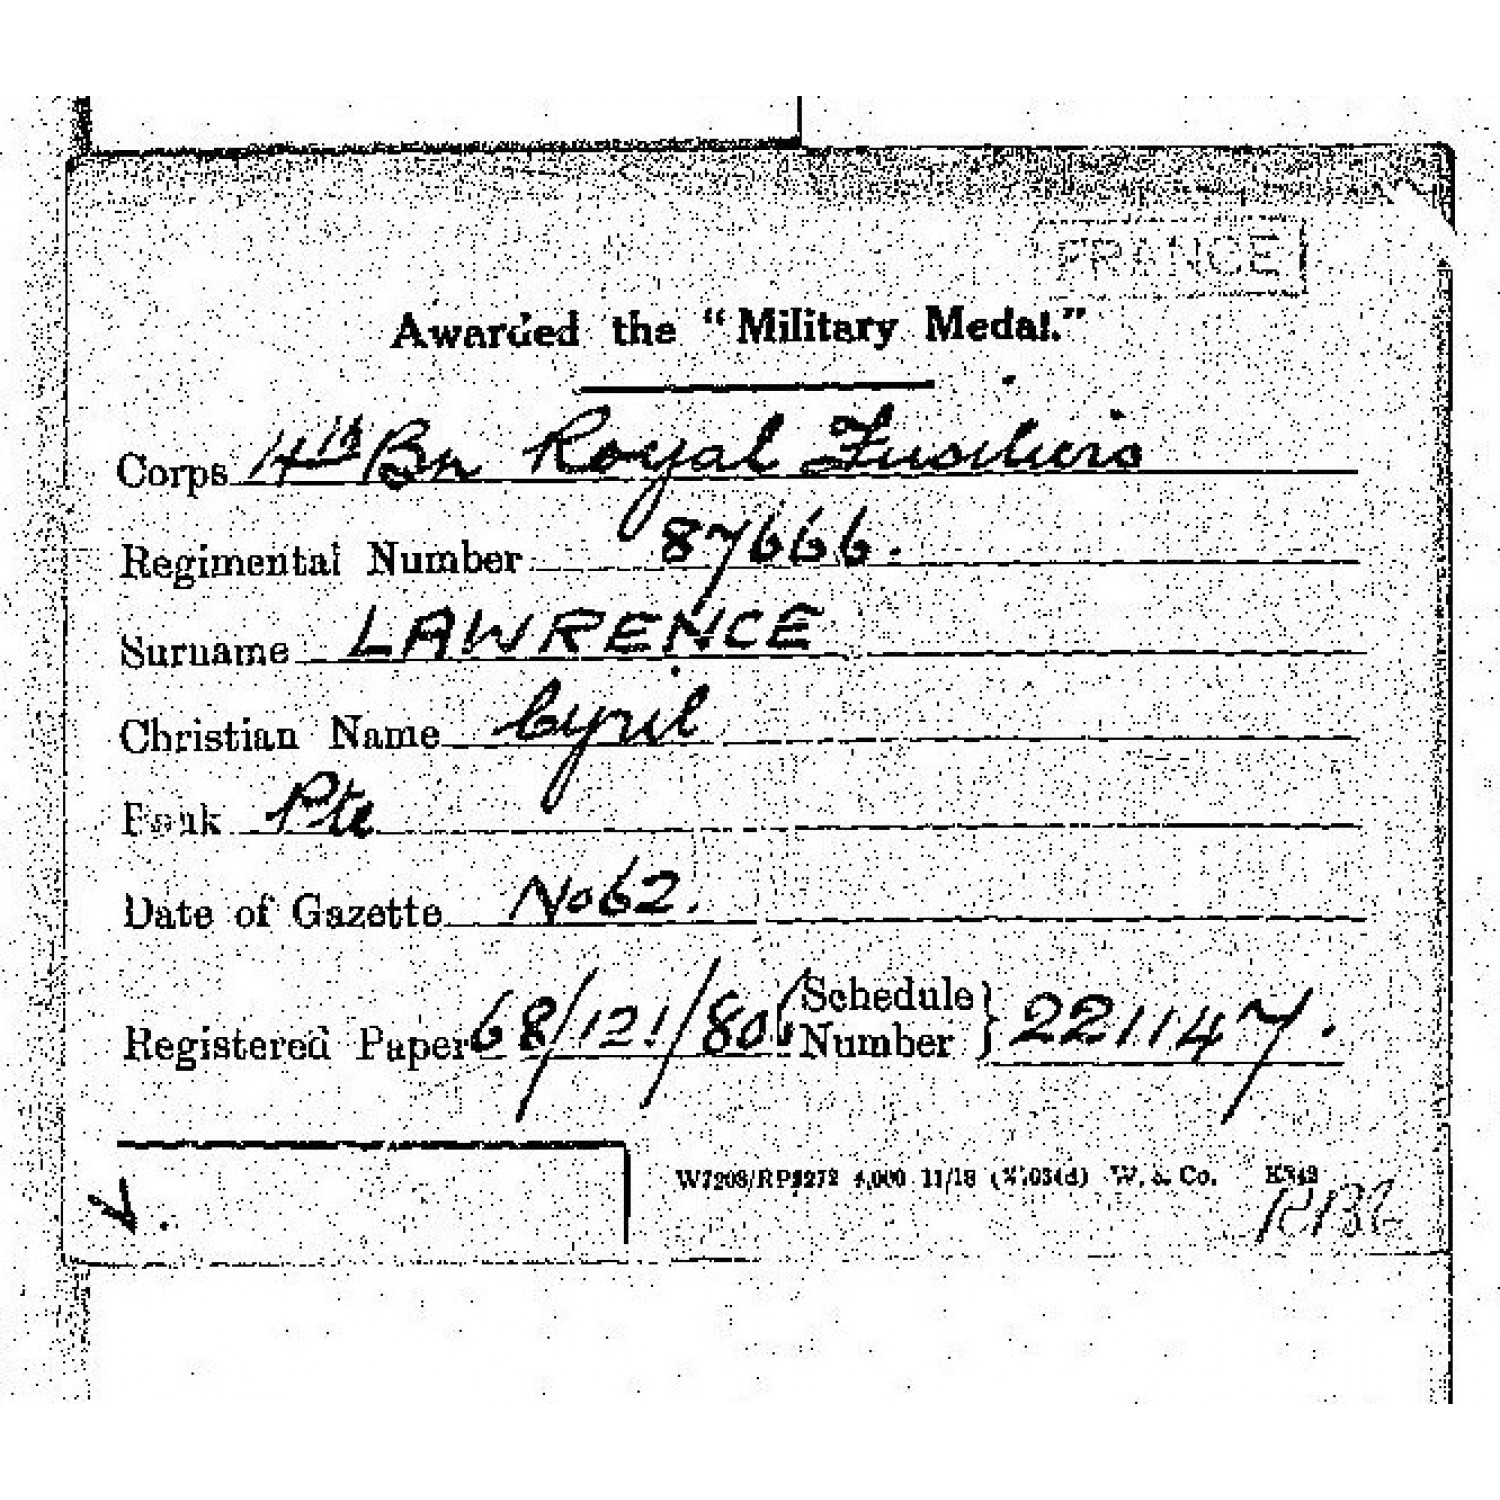 FRANCE
Awarded the "Military Medal."
Corps 4th Bn Royal Fusiliers
Regimental Number 87666.
Surname LAWRENCE
Christian Name Cyril
Rank Pte
Date of Gazette No 62.
Registered Paper 68/121/80. Schedule Number 221147.
4,000 11/18 W. & Co.